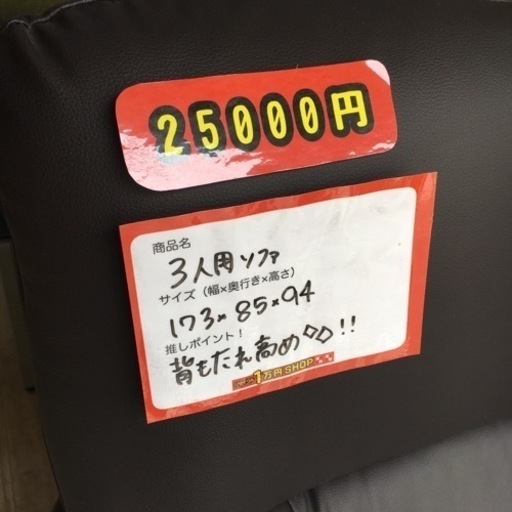 25000円
商品名
3人用ソファ
サイズ（幅×奥行き×高さ）
173×85×94
推しポイント！
背もたれ高め◇◇!!
1万円SHOP